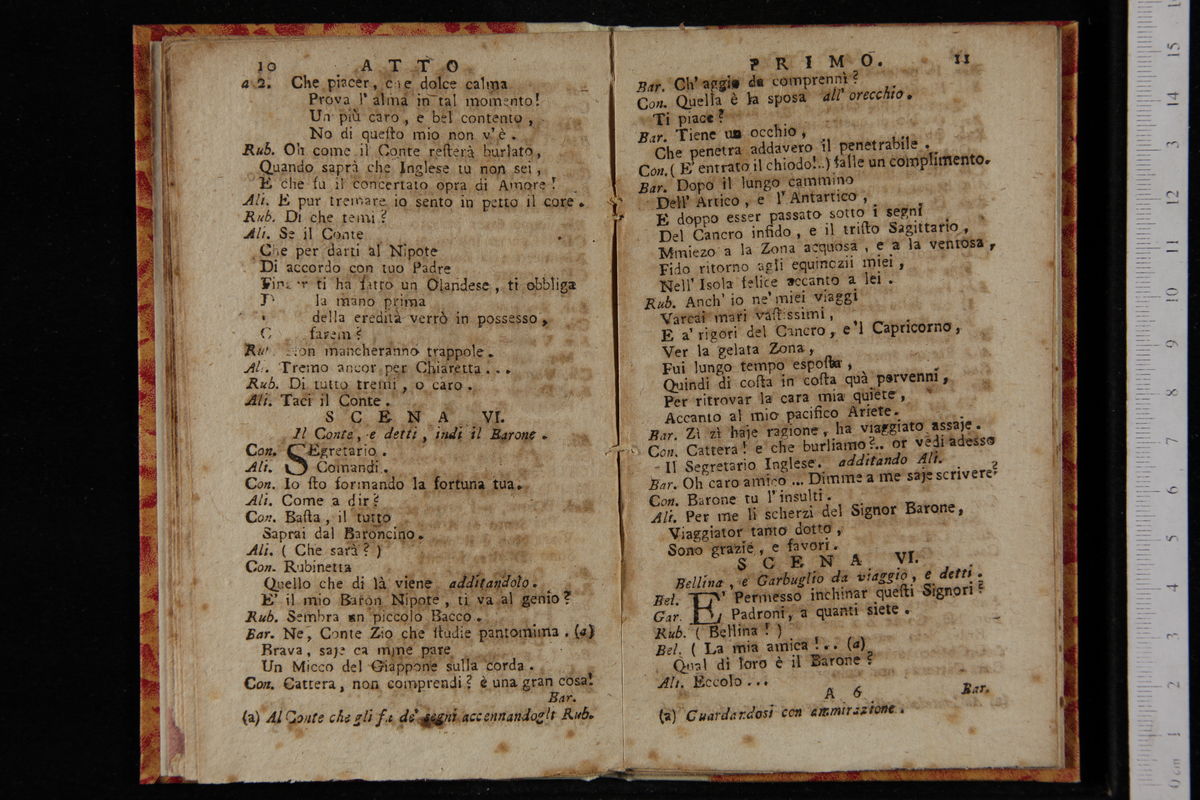 10 ATTO
a 2. Che piacer, che dolce calma
Prova l'alma in tal momento!
Un più caro, e bel contento,
No di queſto mio non v'è.
Rub. Oh come il Conte reſterà burlato,
Quando saprà che Inglese tu non sei,
E che fu il concertato opra di Amore!
Ali. E pur tremare io sento in petto il core.
Rub. Di che temi?
Ali. Se il Conte
Che per darti al Nipote
Di accordo con tuo Padre
ti ha fatto un Olandese, ti obbliga
la mano prima
della eredità verrò in possesso,
farem?
Rub. Non mancheranno trappole.
Ali. Tremo ancor per Chiaretta...
Rub. Di tutto tremi, o caro.
Ali. Taci il Conte.
SCENA VI.
Il Conte, e detti, indi il Barone.
Con. SEgretario.
Ali. Comandi.
Con. Io ſto formando la fortuna tua.
Ali. Come a dir?
Con. Baſta, il tutto
Saprai dal Baroncino.
Ali. (Che sarà?)
Con. Rubinetta
Quello che di là viene additandolo.
E' il mio Baron Nipote, ti va al genio?
Rub. Sembra un piccolo Bacco.
Bar. Ne, Conte Zio che ſtudie pantomima. (a)
Brava, saje ca mme pare
Un Micco del Giappone sulla corda.
Con. Cattera, non comprendi? è una gran cosa!
Bar.
(a) Al Conte che gli fa de' segni accennandogli Rub.
PRIMO. 11
Bar. Ch'aggio da comprennì?
Con. Quella è la sposa all'orecchio.
Ti piace?
Bar. Tiene un occhio,
Che penetra addavero il penetrabile.
Con. (E' entrato il chiodo!..) falle un complimento.
Bar. Dopo il lungo cammino
Dell'Artico, e l'Antartico,
E doppo esser passato sotto i segni
Del Cancro infido, e il triſto Sagittario,
Mmiezo a la Zona acquosa, e a la ventosa,
Fido ritorno agli equinozii miei,
Nell'Isola felice accanto a lei.
Rub. Anch'io ne' miei viaggi
Varcai mari vaſtissimi,
E a' rigori del Cancro, e'l Capricorno,
Ver la gelata Zona,
Fui lungo tempo espoſta,
Quindi di coſta in coſta quà pervenni,
Per ritrovar la cara mia quiete,
Accanto al mio pacifico Ariete.
Bar. Zì zì haje ragione, ha viaggiato assaje.
Con. Cattera! e che burliamo?.. or vedi adesso
Il Segretario Inglese. additando Ali.
Bar. Oh caro amico... Dimme a me saje scrivere?
Con. Barone tu l'insulti.
Ali. Per me li scherzi del Signor Barone,
Viaggiator tanto dotto,
Sono grazie, e favori.
SCENA VI.
Bellina, e Garbuglio da viaggio, e detti.
Bel. E' Permesso inchinar queſti Signori?
Gar. Padroni, a quanti siete.
Rub. (Bellina!)
Bel. (La mia amica!.. (a)
Qual di loro è il Barone?
Ali. Eccolo...
A 6 Bar.
(a) Guardandosi con ammirazione.